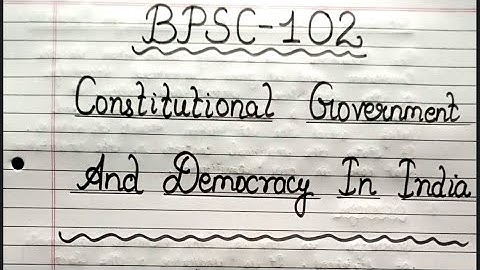 BPSC-102
Constitutional Government
And Democracy In India